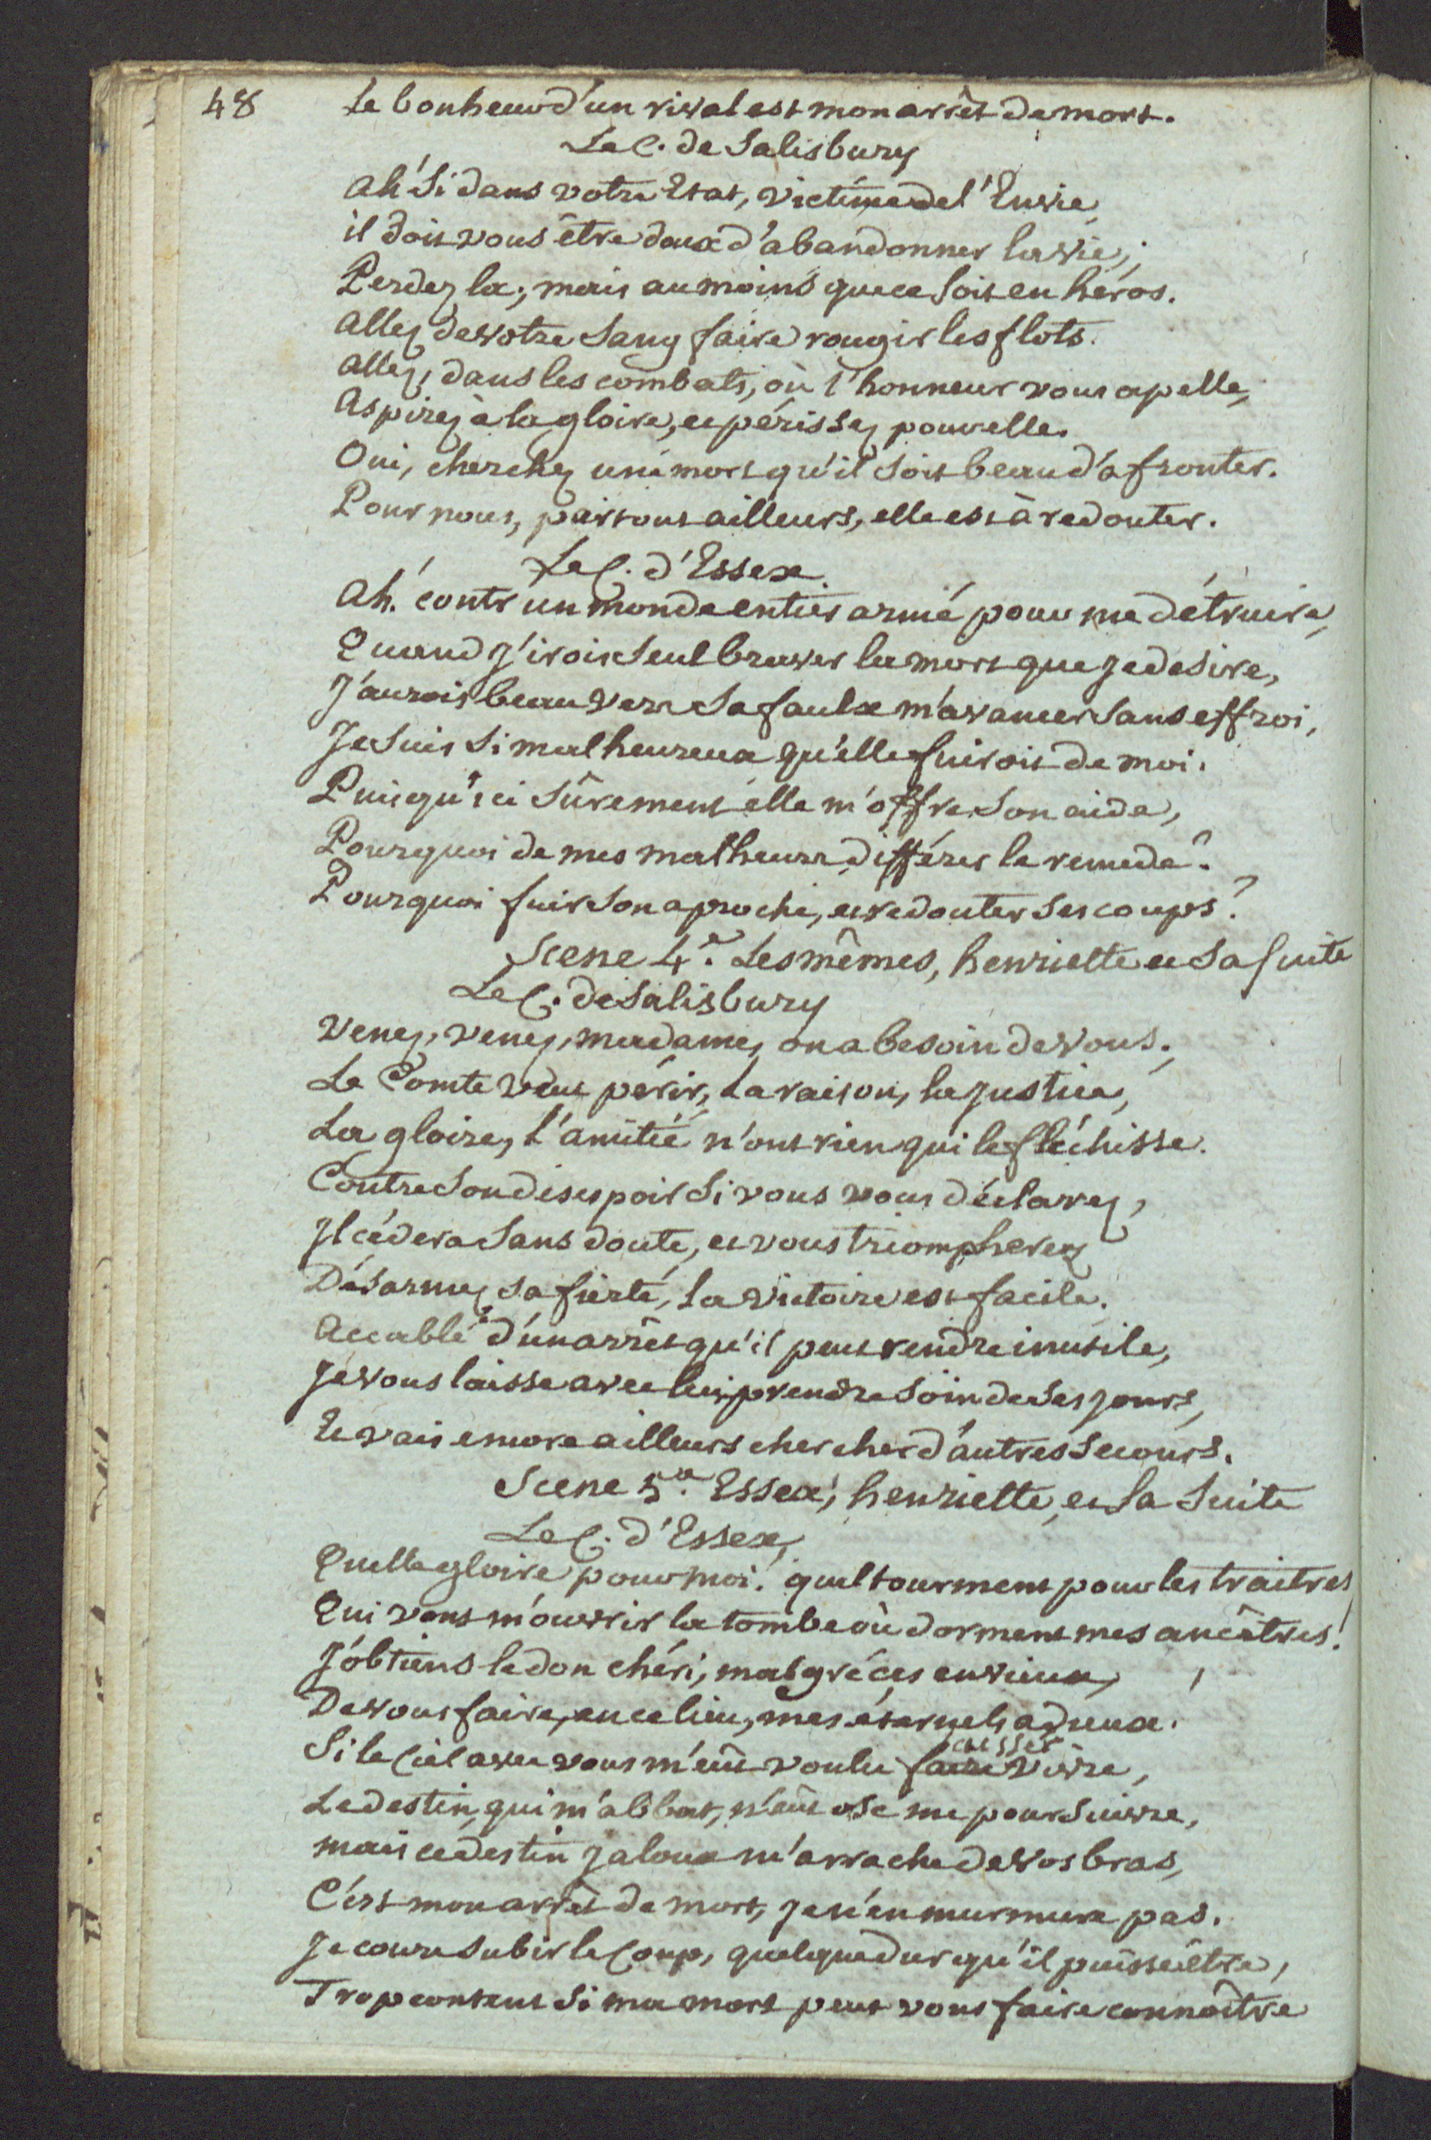 48
Le bonheur d'un rival est mon arrêt de mort.
Le C. de Salisbury
Ah! Si dans votre Etat, victime de l'Envie,
il doit vous être doux d'abandonner la vie;
Perdez la; mais au moins que ce soit en héros.
Allez de votre Sang faire rougir les flots.
Allez, dans les combats, où l'honneur vous apelle,
Aspirez à la gloire, et périssez pour elle.
Oui, cherchez une mort qu'il soit beau d'afronter.
Pour nous, partout ailleurs, elle est à redouter.
Le C. d'Essex.
Ah! contr'un monde entier armé pour me détruire,
Quand J'irois Seul braver la mort que Je desire,
J'aurois beau vers Sa faulx m'avancer Sans effroi,
Je Suis Si malheureux qu'elle fuiroit de moi.
Puisqu'ici Sûrement elle m'offre Son aide,
Pourquoi de mes malheurs différer le remede?
Pourquoi fuir Son aproche, et redouter Ses coups?
Scene 4.e Les mêmes, henriette et Sa Suite
Le C. de Salisbury
Venez, venez, madame, on a besoin de vous.
Le Comte veut périr, La raison, la Justice,
La gloire, l'amitié n'ont rien qui le fléchisse.
Contre Son désespoir Si vous vous déclarez,
Il cédera Sans doute, et vous triompherez
Désarmez Sa fierté, la victoire est facile.
Accablé d'un arrêt qu'il peut rendre inutile,
Je vous laisse avec lui prendre Soin de Ses Jours,
Et vais encore ailleurs chercher d'autres Secours.
Scene 5.e Essex, henriette, et Sa Suite
Le C. d'Essex,
Quelle gloire pour moi! quel tourment pour les traitres
Qui vont m'ouvrir la tombe où dorment mes ancêtres!
J'obtiens le don chéri, malgré ces envieux,
De vous faire, en ce lieu, mes éternels adieux.
Si le Ciel avec vous m'eût voulu faire vivre,
Le destin, qui m'abbat, n'eût osé me poursuivre,
mais ce destin Jaloux m'arrache de vos bras,
C'est mon arrêt de mort, Je n'en murmure pas.
Je cours Subir le Coup, quelque dur qu'il puisse être,
Trop content Si ma mort peut vous faire connoître